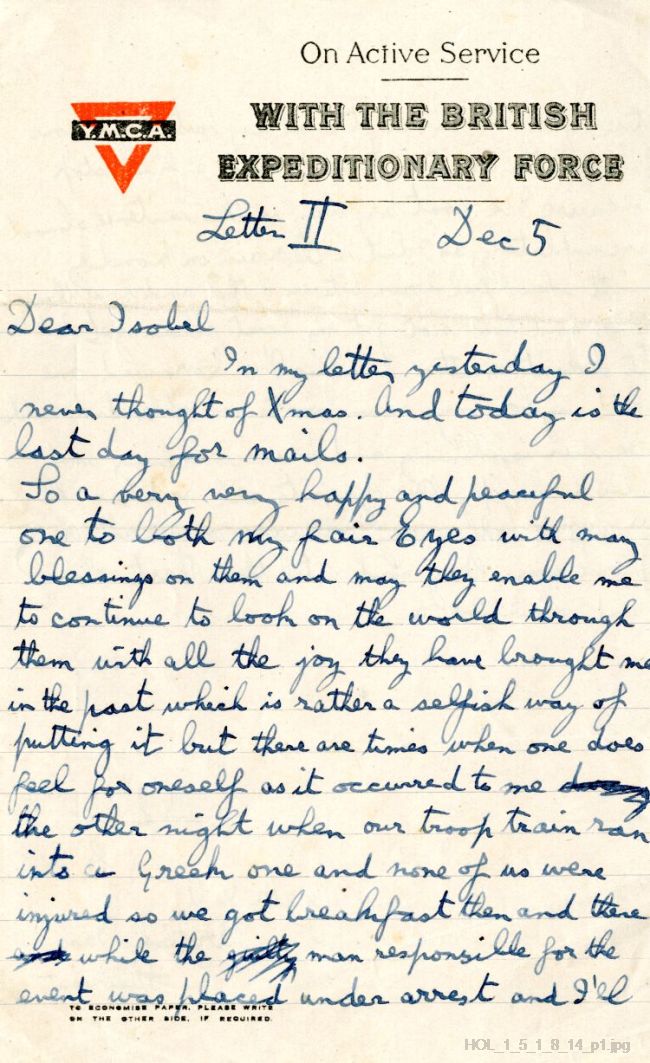 On Active Service
Y.M.C.A.
WITH THE BRITISH
EXPEDITIONARY FORCE
Letter II Dec 5
Dear Isobel
In my letter yesterday I
never thought of Xmas. And today is the
last day for mails.
So a very very happy and peaceful
one to both my fair Eyes with many
blessings on them and may they enable me
to continue to look on the world through
them with all the joy they have brought me
in the past which is rather a selfish way of
putting it but there are times when one does
feel for oneself as it occurred to me
the other night when our troop train ran
into a Greek one and none of us were
injured so we got breakfast then and there
and while the guilty man responsible for the
event was placed under arrest and I'll
TO ECONOMISE PAPER, PLEASE WRITE
ON THE OTHER SIDE, IF REQUIRED.
HOL_1_5_1_8_14_p1.jpg